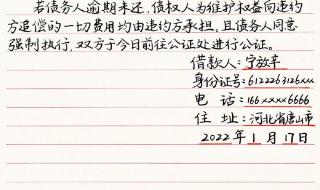 若债务人逾期未还，债权人为维护权益向违约
方追偿的一切费用均由违约方承担，且债务人同意
强制执行，双方于今日前往公证处进行公证。
借款人：宁致平
身份证号：6122263126xxx
电 话：166xxxx6666
住 址：河北省唐山市
2022年1月17日